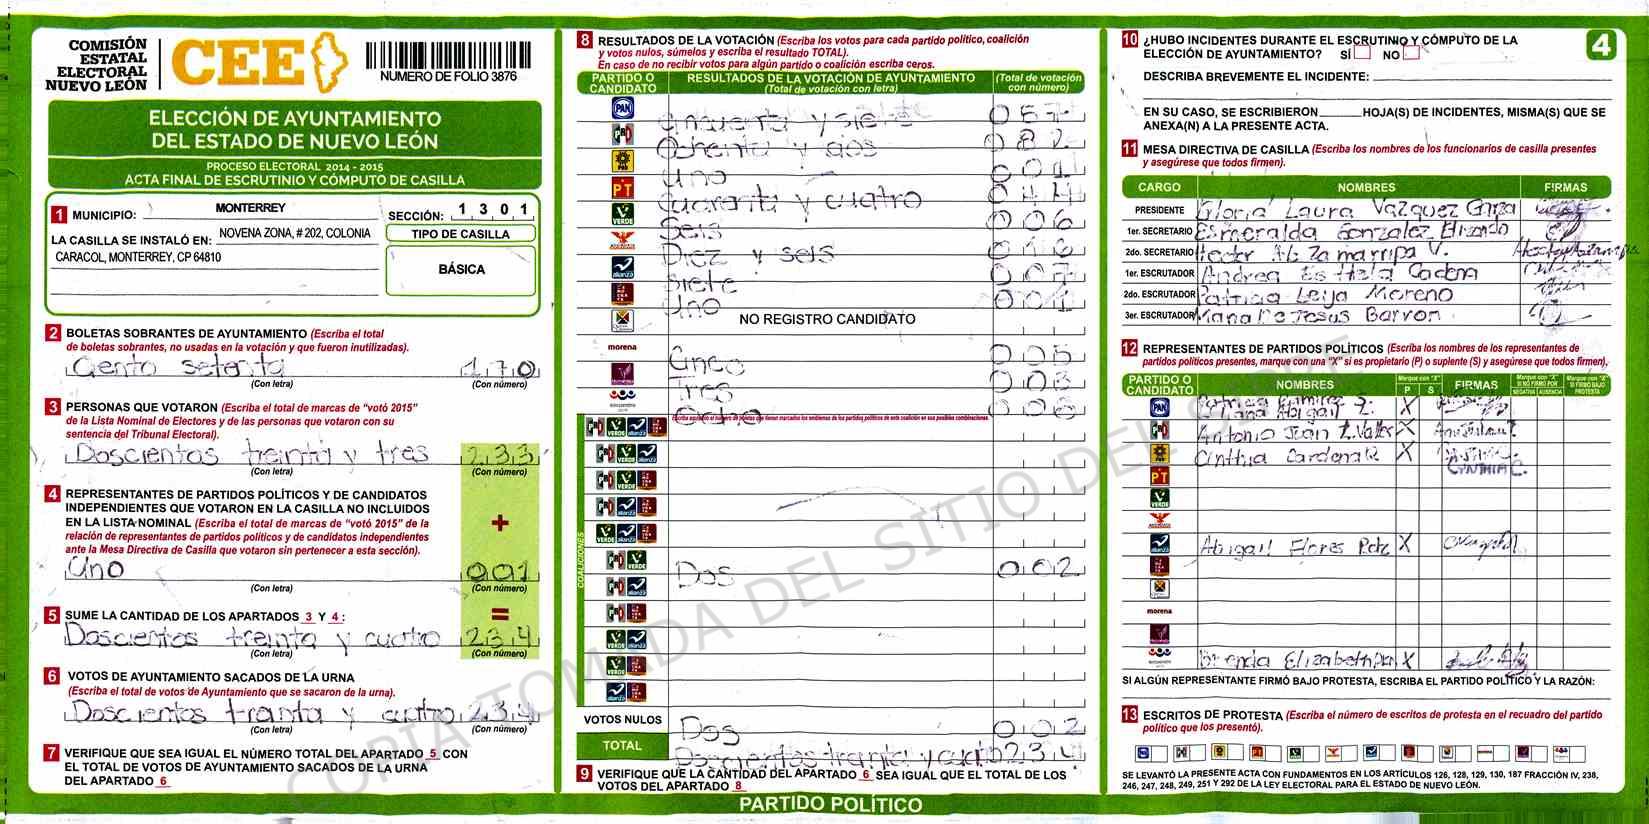 COMISIÓN
ESTATAL
ELECTORAL
NUEVO LEÓN
CEE
NUMERO DE FOLIO 3876
ELECCIÓN DE AYUNTAMIENTO
DEL ESTADO DE NUEVO LEÓN
PROCESO ELECTORAL 2014 - 2015
ACTA FINAL DE ESCRUTINIO Y CÓMPUTO DE CASILLA
1 MUNICIPIO: MONTERREY
SECCIÓN: 1 3 0 1
LA CASILLA SE INSTALÓ EN: NOVENA ZONA, # 202, COLONIA
CARACOL, MONTERREY, CP 64810
TIPO DE CASILLA
BÁSICA
2 BOLETAS SOBRANTES DE AYUNTAMIENTO (Escriba el total
de boletas sobrantes, no usadas en la votación y que fueron inutilizadas).
Ciento setenta 170
(Con letra) (Con número)
3 PERSONAS QUE VOTARON (Escriba el total de marcas de "votó 2015"
de la Lista Nominal de Electores y de las personas que votaron con su
sentencia del Tribunal Electoral).
Doscientos treinta y tres 233
(Con letra) (Con número)
4 REPRESENTANTES DE PARTIDOS POLÍTICOS Y DE CANDIDATOS
INDEPENDIENTES QUE VOTARON EN LA CASILLA NO INCLUIDOS
EN LA LISTA NOMINAL (Escriba el total de marcas de "votó 2015" de la
relación de representantes de partidos políticos y de candidatos independientes
ante la Mesa Directiva de Casilla que votaron sin pertenecer a esta sección).
+
Uno 001
(Con letra) (Con número)
5 SUME LA CANTIDAD DE LOS APARTADOS 3 Y 4 :
=
Doscientos treinta y cuatro 234
(Con letra) (Con número)
6 VOTOS DE AYUNTAMIENTO SACADOS DE LA URNA
(Escriba el total de votos de Ayuntamiento que se sacaron de la urna).
Doscientos tranta y cuatro 234
(Con letra) (Con número)
7 VERIFIQUE QUE SEA IGUAL EL NÚMERO TOTAL DEL APARTADO 5 CON
EL TOTAL DE VOTOS DE AYUNTAMIENTO SACADOS DE LA URNA
DEL APARTADO 6
8 RESULTADOS DE LA VOTACIÓN (Escriba los votos para cada partido político, coalición
y votos nulos, súmelos y escriba el resultado TOTAL).
En caso de no recibir votos para algún partido o coalición escriba ceros.
PARTIDO O CANDIDATO
RESULTADOS DE LA VOTACIÓN DE AYUNTAMIENTO
(Total de votación con letra)
(Total de votación con número)
PAN Cincuenta y siete 057
PRI Ochenta y dos 082
PRD Uno 001
PT Cuarenta y cuatro 044
VERDE Seis 006
Diez y seis 016
alianza Siete 007
Uno 001
NO REGISTRO CANDIDATO
morena Cinco 005
Tres 003
encuentro Ocho 008
COALICIONES
PRI VERDE Dos 002
VOTOS NULOS Dos 002
TOTAL Doscientos treinta y cuatro 234
9 VERIFIQUE QUE LA CANTIDAD DEL APARTADO 6 SEA IGUAL QUE EL TOTAL DE LOS
VOTOS DEL APARTADO 8
PARTIDO POLÍTICO
COPIA TOMADA DEL SITIO DEL SIPRE
4
10 ¿HUBO INCIDENTES DURANTE EL ESCRUTINIO Y CÓMPUTO DE LA
ELECCIÓN DE AYUNTAMIENTO? SÍ NO
DESCRIBA BREVEMENTE EL INCIDENTE:
EN SU CASO, SE ESCRIBIERON HOJA(S) DE INCIDENTES, MISMA(S) QUE SE
ANEXA(N) A LA PRESENTE ACTA.
11 MESA DIRECTIVA DE CASILLA (Escriba los nombres de los funcionarios de casilla presentes
y asegúrese que todos firmen).
CARGO NOMBRES FIRMAS
PRESIDENTE Gloria Laura Vazquez Garza
1er. SECRETARIO Esmeralda Gonzalez Elizondo
2do. SECRETARIO Hector Zamarripa V.
1er. ESCRUTADOR Andrea Esthela Cadena
2do. ESCRUTADOR Patricia Leija Moreno
3er. ESCRUTADOR Maria De Jesus Barron
12 REPRESENTANTES DE PARTIDOS POLÍTICOS (Escriba los nombres de los representantes de
partidos políticos presentes, marque con una "X" si es propietario (P) o suplente (S) y asegúrese que todos firmen),
PARTIDO O CANDIDATO
NOMBRES
Marque con "X"
P S
FIRMAS
Marque con "X" SI NO FIRMÓ POR
NEGATIVA AUSENCIA
Marque con "X" SI FIRMÓ BAJO PROTESTA
PAN Ramirez S. X
Abigail Z.
PRI Antonio Juan Z. Valles X
PRD Cinthia Cardona R X CYNTHIA C.
PT
VERDE
alianza Abigail Flores X
morena
Brenda Elizabeth X
SI ALGÚN REPRESENTANTE FIRMÓ BAJO PROTESTA, ESCRIBA EL PARTIDO POLÍTICO Y LA RAZÓN:
13 ESCRITOS DE PROTESTA (Escriba el número de escritos de protesta en el recuadro del partido
político que los presentó).
SE LEVANTÓ LA PRESENTE ACTA CON FUNDAMENTOS EN LOS ARTÍCULOS 126, 128, 129, 130, 187 FRACCIÓN IV, 238,
246, 247, 248, 249, 251 Y 292 DE LA LEY ELECTORAL PARA EL ESTADO DE NUEVO LEÓN.